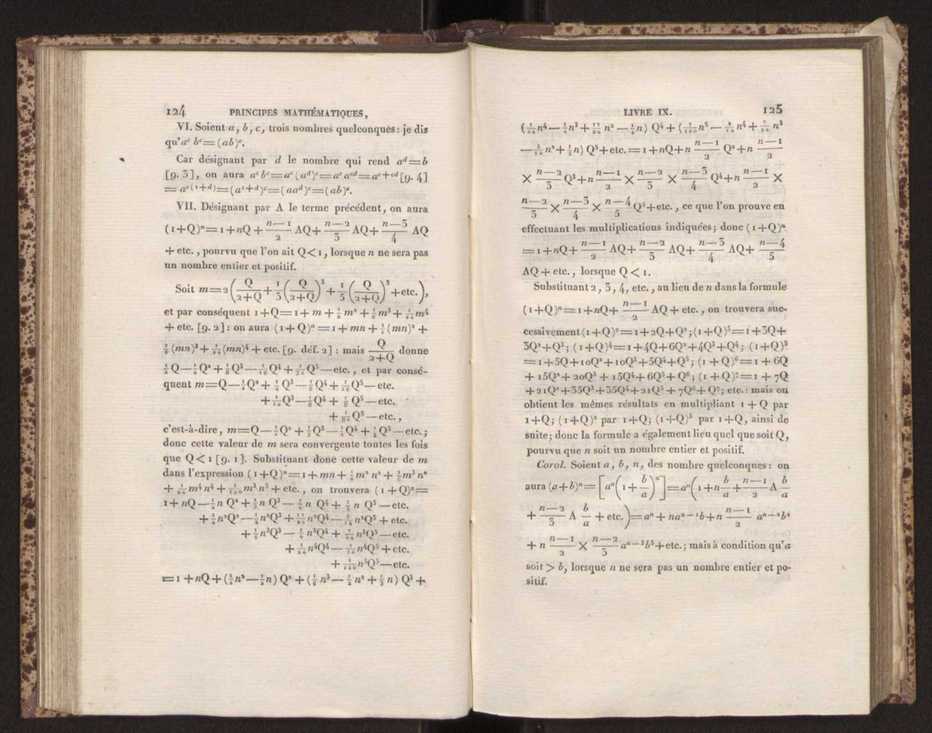 124 PRINCIPES MATHÉMATIQUES,
VI. Soient a, b, c, trois nombres quelconques: je dis
qu'aᶜ bᶜ=(ab)ᶜ.
Car désignant par d le nombre qui rend aᵈ=b
[9. 3], on aura aᶜbᶜ=aᶜ(aᵈ)ᶜ=aᶜaᶜᵈ=aᶜ⁺ᶜᵈ [9. 4]
=aᶜ⁽¹⁺ᵈ⁾=(a¹⁺ᵈ)ᶜ=(aaᵈ)ᶜ=(ab)ᶜ.
VII. Désignant par A le terme précédent, on aura
(1+Q)ⁿ=1+nQ+(n—1)/2 AQ+(n—2)/3 AQ+(n—3)/4 AQ
+etc., pourvu que l'on ait Q<1, lorsque n ne sera pas
un nombre entier et positif.
Soit m=2(Q/(2+Q)+1/3(Q/(2+Q))³+1/5(Q/(2+Q))⁵+etc.),
et par conséquent 1+Q=1+m+½m²+⅙m³+1/24 m⁴
+etc. [9. 2]: on aura (1+Q)ⁿ=1+mn+½(mn)²+
⅙(mn)³+1/24(mn)⁴+etc. [9. déf. 2]: mais Q/(2+Q) donne
½Q—¼Q²+⅛Q³—1/16Q⁴+1/32Q⁵—etc., et par consé-
quent m=Q—½Q²+¼Q³—⅛Q⁴+1/16Q⁵—etc.
+1/12Q³—⅛Q⁴+⅛Q⁵—etc.
+1/80Q⁵—etc.,
c'est-à-dire, m=Q—½Q²+⅓Q³—¼Q⁴+⅕Q⁵—etc.;
donc cette valeur de m sera convergente toutes les fois
que Q<1 [9. 1]. Substituant donc cette valeur de m
dans l'expression (1+Q)ⁿ=1+mn+½m²n²+⅙m³n³
+1/24 m⁴n⁴+1/120 m⁵n⁵+etc., on trouvera (1+Q)ⁿ=
1+nQ—½n Q²+⅓n Q³—¼n Q⁴+⅕n Q⁵—etc.
+½n²Q²—½n²Q³+11/24n²Q⁴—5/12n²Q⁵+etc.
+⅙n³Q³—¼n³Q⁴+7/24n³Q⁵—etc.
+1/24n⁴Q⁴—1/12n⁴Q⁵+etc.
+1/120n⁵Q⁵—etc.
=1+nQ+(½n²—½n)Q²+(⅙n³—½n²+⅓n)Q³+
LIVRE IX. 125
(1/24n⁴—¼n³+11/24n²—¼n)Q⁴+(1/120n⁵—1/12n⁴+7/24n³
—5/12n²+⅕n)Q⁵+etc.=1+nQ+n (n—1)/2 Q²+n (n—1)/2
×(n—2)/3 Q³+n (n—1)/2×(n—2)/3×(n—3)/4 Q⁴+n (n—1)/2×
(n—2)/3×(n—3)/4×(n—4)/5 Q⁵+etc., ce que l'on prouve en
effectuant les multiplications indiquées; donc (1+Q)ⁿ
=1+nQ+(n—1)/2 AQ+(n—2)/3 AQ+(n—3)/4 AQ+(n—4)/5
AQ+etc., lorsque Q<1.
Substituant 2, 3, 4, etc., au lieu de n dans la formule
(1+Q)ⁿ=1+nQ+(n—1)/2 AQ+etc., on trouvera suc-
cessivement (1+Q)²=1+2Q+Q²; (1+Q)³=1+3Q+
3Q²+Q³; (1+Q)⁴=1+4Q+6Q²+4Q³+Q⁴; (1+Q)⁵
=1+5Q+10Q²+10Q³+5Q⁴+Q⁵; (1+Q)⁶=1+6Q
+15Q²+20Q³+15Q⁴+6Q⁵+Q⁶; (1+Q)⁷=1+7Q
+21Q²+35Q³+35Q⁴+21Q⁵+7Q⁶+Q⁷; etc.: mais on
obtient les mêmes résultats en multipliant 1+Q par
1+Q; (1+Q)² par 1+Q; (1+Q)³ par 1+Q, ainsi de
suite; donc la formule a également lieu quel que soit Q,
pourvu que n soit un nombre entier et positif.
Corol. Soient a, b, n, des nombre quelconques: on
aura (a+b)ⁿ=[aⁿ(1+b/a)ⁿ]=aⁿ(1+n b/a+(n—1)/2 A b/a
+(n—2)/3 A b/a+etc.)=aⁿ+naⁿ⁻¹b+n (n—1)/2 aⁿ⁻²b²
+n (n—1)/2×(n—2)/3 aⁿ⁻³b³+etc.; mais à condition qu'a
soit > b, lorsque n ne sera pas un nombre entier et po-
sitif.